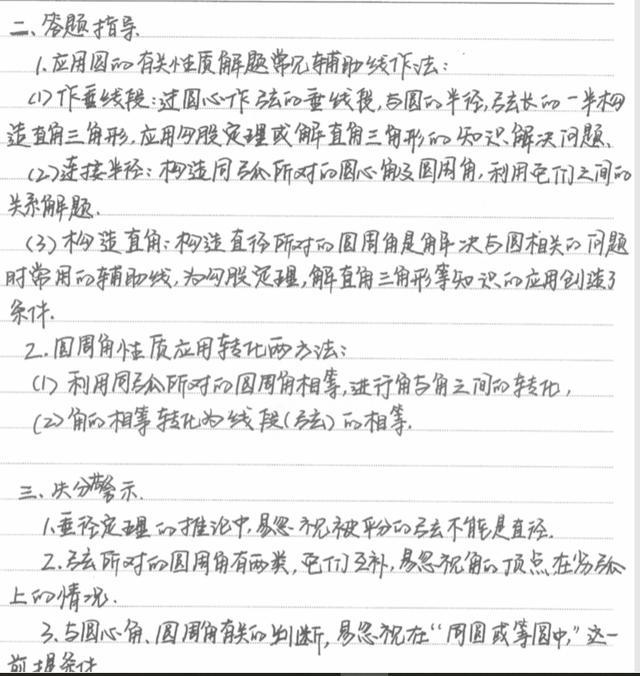 二、答题指导.
1.应用圆的有关性质解题常见辅助线作法:
(1)作垂线段:过圆心作弦的垂线段,与圆的半径,弦长的一半构
造直角三角形,应用勾股定理或解直角三角形的知识解决问题、
(2)连接半径:构造同弧所对的圆心角及圆周角,利用它们之间的
关系解题.
(3)构造直角:构造直径所对的圆周角是解决与圆相关的问题
时常用的辅助线,为勾股定理,解直角三角形等知识的应用创造了
条件.
2.圆周角性质应用转化两方法:
(1)利用同弧所对的圆周角相等,进行角与角之间的转化,
(2)角的相等转化为线段(弦)的相等.
三、失分警示.
1.垂径定理的推论中,易忽视被平分的弦不能是直径.
2.弦所对的圆周角有两类,它们互补,易忽视角的顶点在劣弧
上的情况.
3.与圆心角、圆周角有关的判断,易忽视在“同圆或等圆中,”这一
前提条件